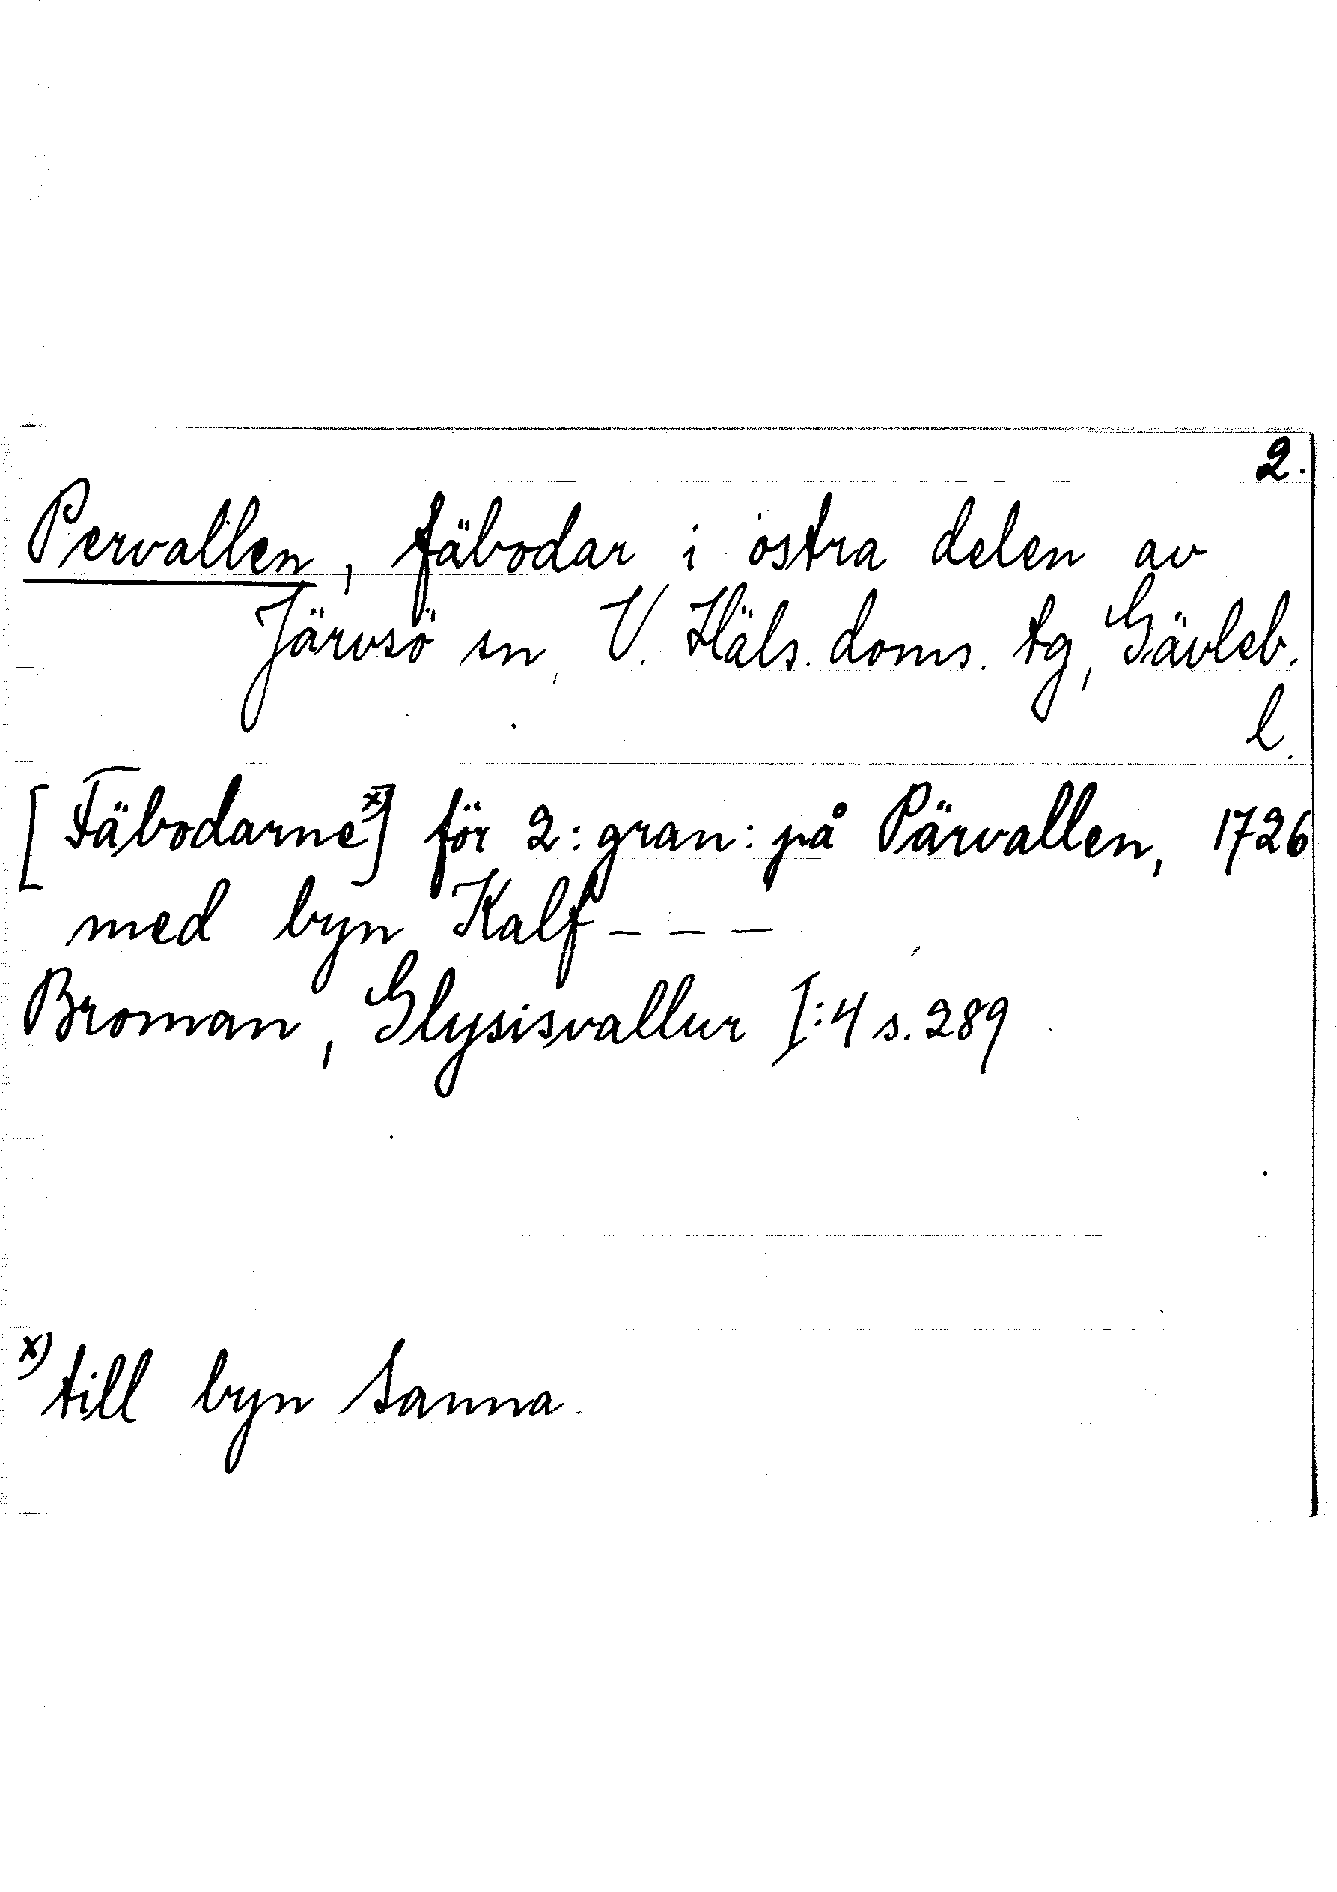 2.
Pervallen, fäbodar i östra delen av
Järvsö sn, V. Häls. doms. tg, Gävleb.
l.
[Fäbodarne x)] för 2: gran: på Pärvallen, 1726
med byn Kalf - - -
Broman, Glysisvallur I:4 s. 289
x) till byn Sanna.